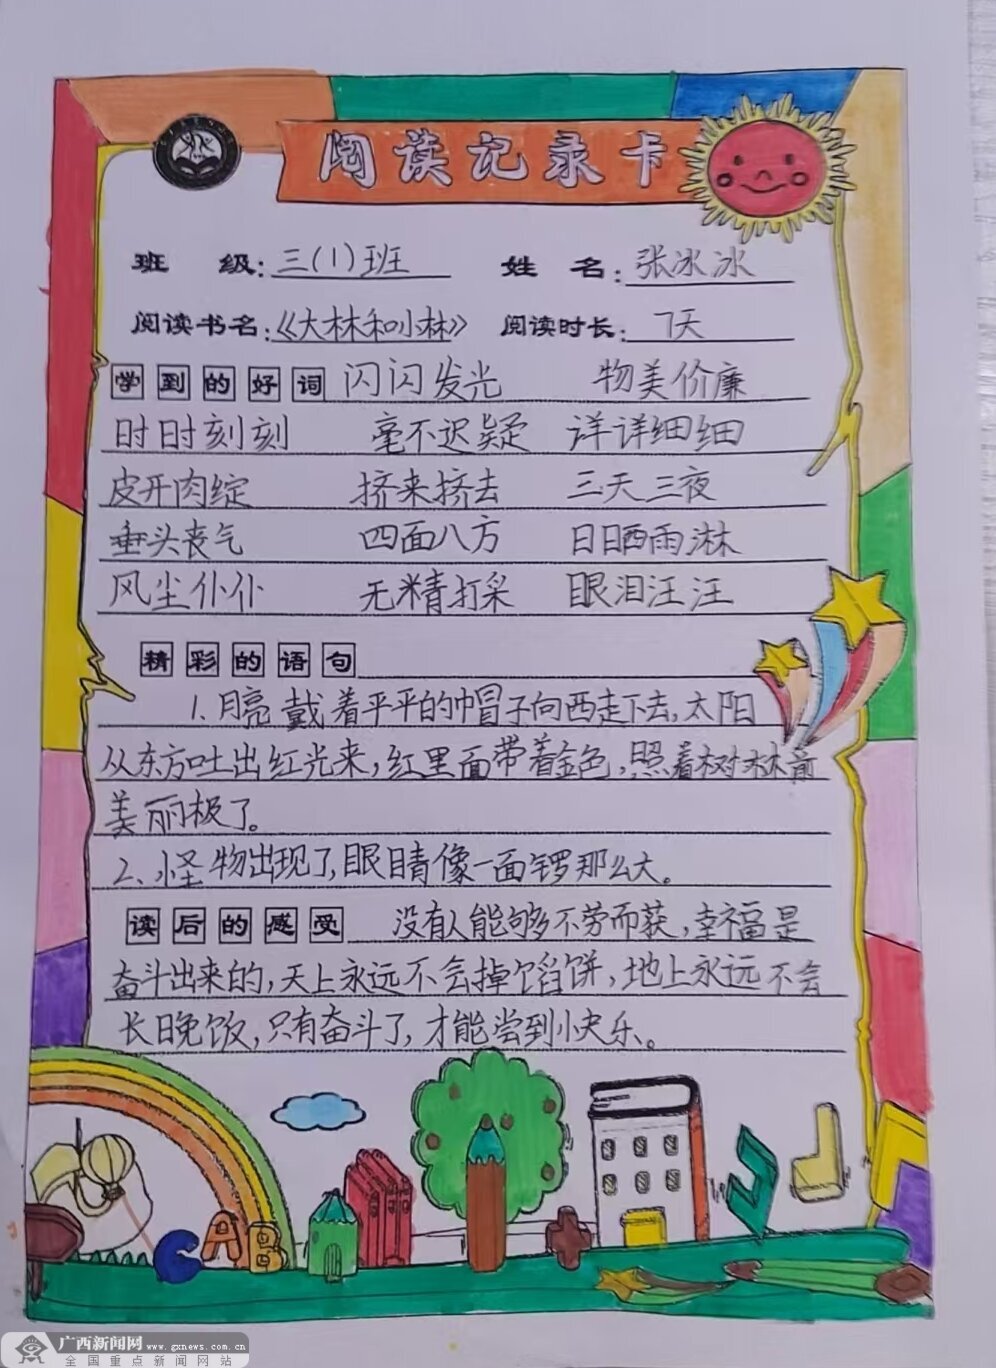 阅读记录卡
班级:三(1)班 姓名:张冰冰
阅读书名:《大林和小林》 阅读时长:7天
学到的好词 闪闪发光 物美价廉
时时刻刻 毫不迟疑 详详细细
皮开肉绽 挤来挤去 三天三夜
垂头丧气 四面八方 日晒雨淋
风尘仆仆 无精打采 眼泪汪汪
精彩的语句
1.月亮戴着平平的帽子向西走下去,太阳
从东方吐出红光来,红里面带着金色,照着树林前
美丽极了。
2、怪物出现了,眼睛像一面锣那么大。
读后的感受 没有人能够不劳而获,幸福是
奋斗出来的,天上永远不会掉馅饼,地上永远不会
长晚饭,只有奋斗了,才能尝到小快乐。
CAB
广西新闻网 www.gxnews.com.cn
全国重点新闻网站